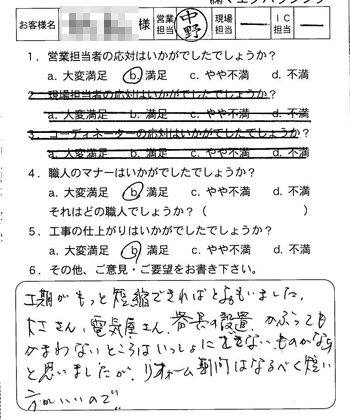 お客様名 様 営業担当 中野 現場担当 ― IC担当 ―
1．営業担当者の応対はいかがでしたでしょうか？
a. 大変満足 b. 満足 c. やや不満 d. 不満
2．現場担当者の応対はいかがでしたでしょうか？
a. 大変満足 b. 満足 c. やや不満 d. 不満
3．コーディネーターの応対はいかがでしたでしょうか？
a. 大変満足 b. 満足 c. やや不満 d. 不満
4．職人のマナーはいかがでしたでしょうか？
a. 大変満足 b. 満足 c. やや不満 d. 不満
それはどの職人でしょうか？（ ）
5．工事の仕上がりはいかがでしたでしょうか？
a. 大変満足 b. 満足 c. やや不満 d. 不満
6．その他、ご意見・ご要望をお書き下さい。
工期がもっと短縮できればとおもいました。
大工さん、電気屋さん、器具の設置、かぶっても
かまわないところはいっしょにできないものかなぁ
と思いましたが、リフォーム期間はなるべく短い
方がいいので